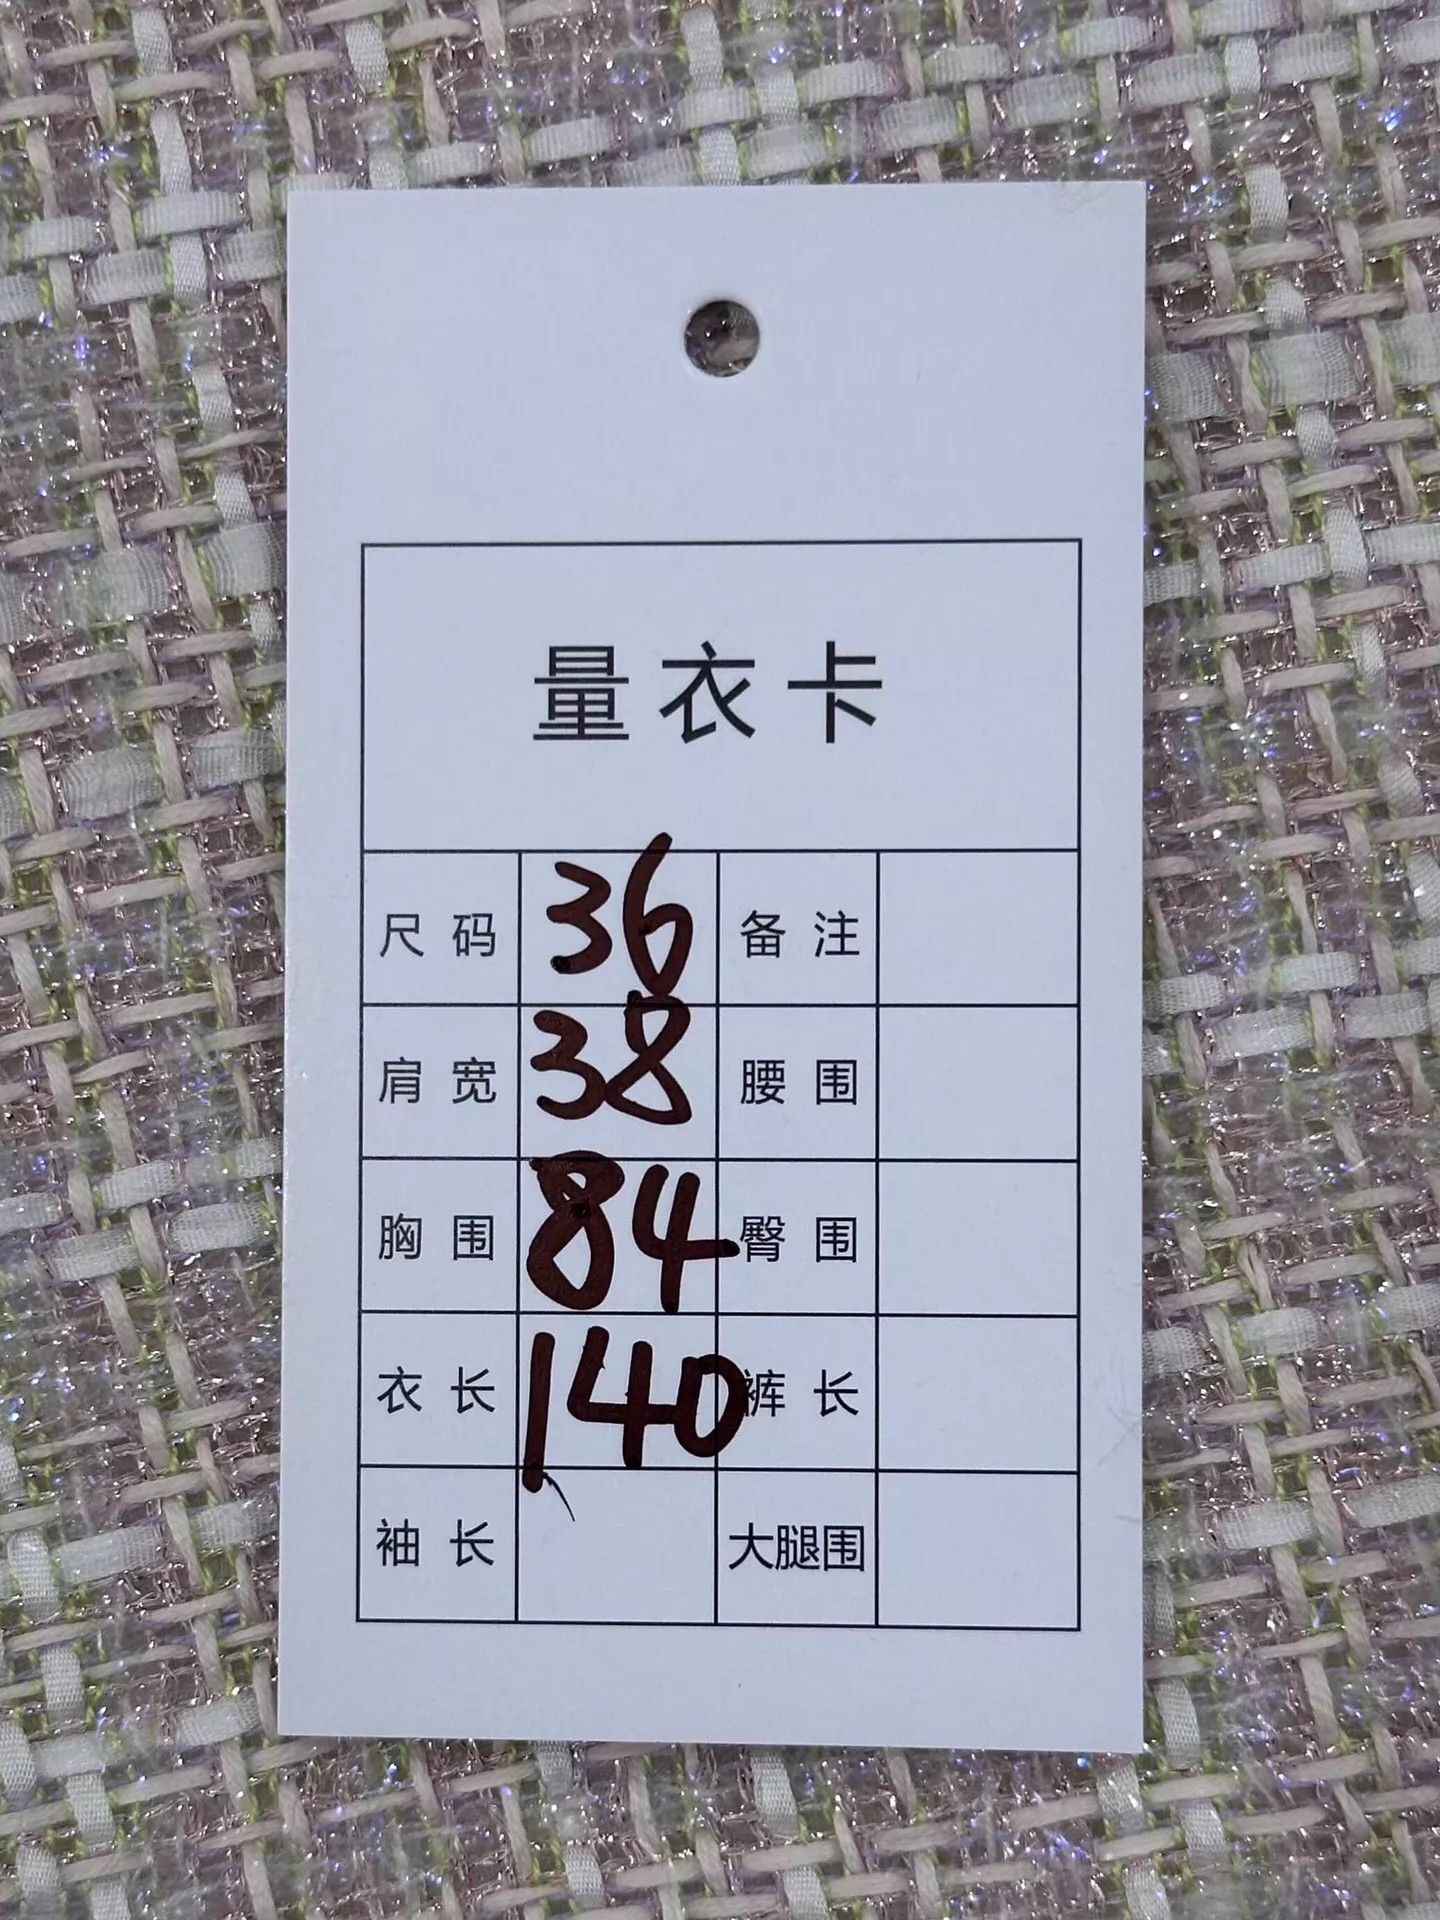 量衣卡
尺码 36 备注
肩宽 38 腰围
胸围 84 臀围
衣长 140 裤长
袖长 大腿围